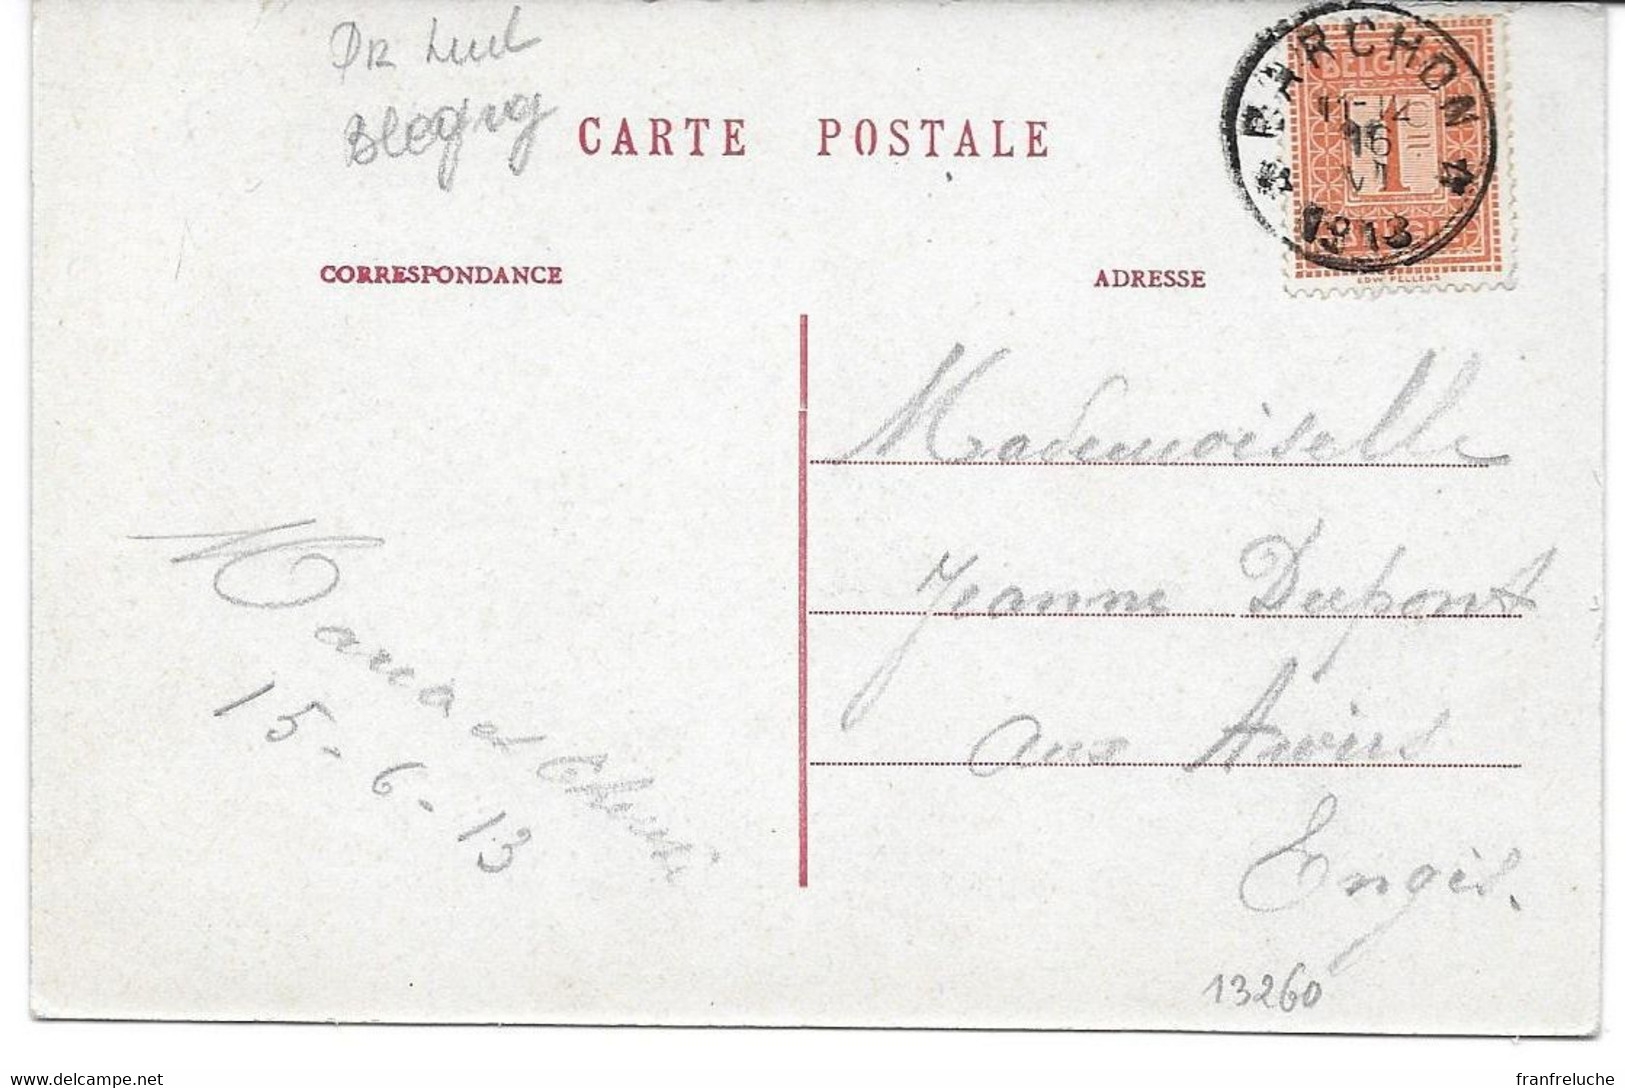 BARCHON
11-12
16
VI
1913
BELGIË
1
BELGIE
EDW PELLENS
Blegny
CARTE POSTALE
CORRESPONDANCE
ADRESSE
Mademoiselle
Jeanne Dupont
aux Awirs
Engis.
Maria et
15-6-13
13260
www.delcampe.net
franfreluche